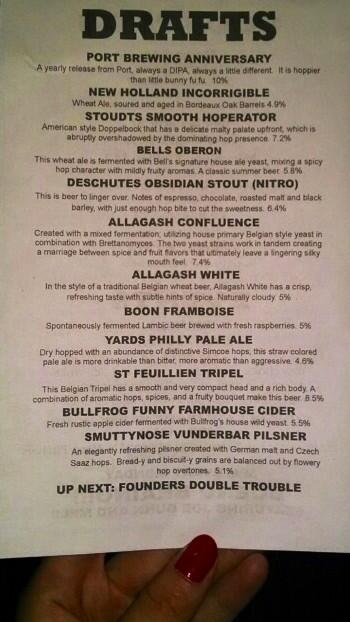 DRAFTS
PORT BREWING ANNIVERSARY
A yearly release from Port, always a DIPA, always a little different. It is hoppier
than little bunny fu fu. 10%
NEW HOLLAND INCORRIGIBLE
Wheat Ale, soured and aged in Bordeaux Oak Barrels 4.9%
STOUDTS SMOOTH HOPERATOR
American style Doppelbock that has a delicate malty palate upfront, which is
abruptly overshadowed by the dominating hop presence. 7.2%
BELLS OBERON
This wheat ale is fermented with Bell's signature house ale yeast, mixing a spicy
hop character with mildly fruity aromas. A classic summer beer. 5.8%
DESCHUTES OBSIDIAN STOUT (NITRO)
This is beer to linger over. Notes of espresso, chocolate, roasted malt and black
barley, with just enough hop bite to cut the sweetness. 6.4%
ALLAGASH CONFLUENCE
Created with a mixed fermentation; utilizing house primary Belgian style yeast in
combination with Brettanomyces. The two yeast strains work in tandem creating
a marriage between spice and fruit flavors that ultimately leave a lingering silky
mouth feel. 7.4%
ALLAGASH WHITE
In the style of a traditional Belgian wheat beer, Allagash White has a crisp,
refreshing taste with subtle hints of spice. Naturally cloudy. 5%
BOON FRAMBOISE
Spontaneously fermented Lambic beer brewed with fresh raspberries. 5%
YARDS PHILLY PALE ALE
Dry hopped with an abundance of distinctive Simcoe hops, this straw colored
pale ale is more drinkable than bitter, more aromatic than aggressive. 4.6%
ST FEUILLIEN TRIPEL
This Belgian Tripel has a smooth and very compact head and a rich body. A
combination of aromatic hops, spices, and a fruity bouquet make this beer. 8.5%
BULLFROG FUNNY FARMHOUSE CIDER
Fresh rustic apple cider fermented with Bullfrog's house wild yeast. 5.5%
SMUTTYNOSE VUNDERBAR PILSNER
An elegantly refreshing pilsner created with German malt and Czech
Saaz hops. Bread-y and biscuit-y grains are balanced out by flowery
hop overtones. 5.1%
UP NEXT: FOUNDERS DOUBLE TROUBLE